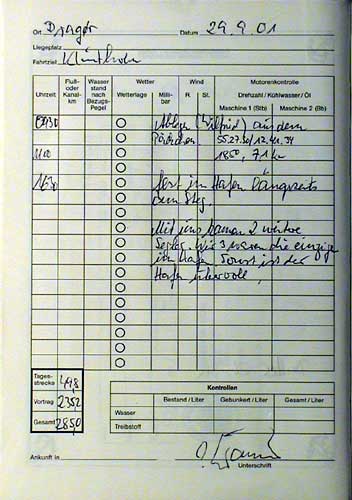 Ort Dragör Datum 29.9.01
Liegeplatz
Fahrtziel Klintholm
Uhrzeit Fluß- oder Kanal- km Wasser stand nach Bezugs- Pegel Wetter Wind Motorenkontrolle
Wetterlage Milli- bar R. St. Drehzahl / Kühlwasser / Öl
Maschine 1 (Stb) Maschine 2 (Bb)
0930 aus dem
55.27.50/ 12.41.34
1100 1850, 7,1 Kn
1630 fest im Hafen längsseits
dem Steg.
Mit uns kamen 2 weitere
Segler. Wir 3 waren die einzigen
im Hafen. Sonst ist der
Hafen übervoll.
Tages- strecke 49,8
Vortrag 2352
Gesamt 2850
Kontrollen
Bestand / Liter Gebunkert / Liter Gesamt / Liter
Wasser
Treibstoff
Ankunft in
Unterschrift